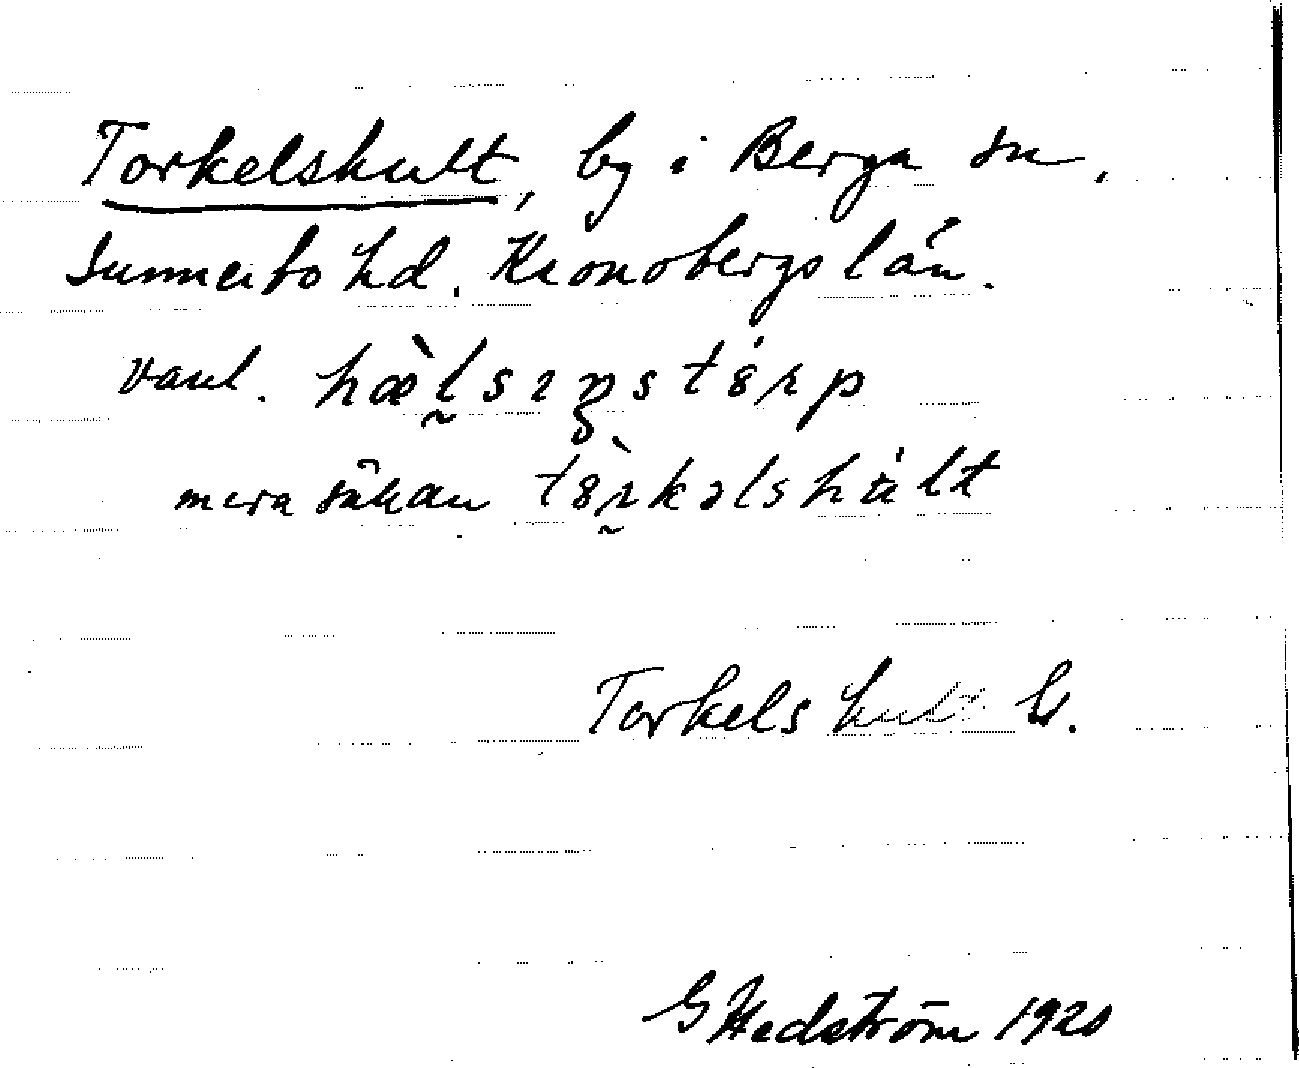 Torkelshult, by i Berga sn,
Sunnerbo hd. Kronobergs län.
vanl. hæ̀lsıŋstórp
mera sällan tòrkəlshált
Torkels hult G.
G Hedström 1920